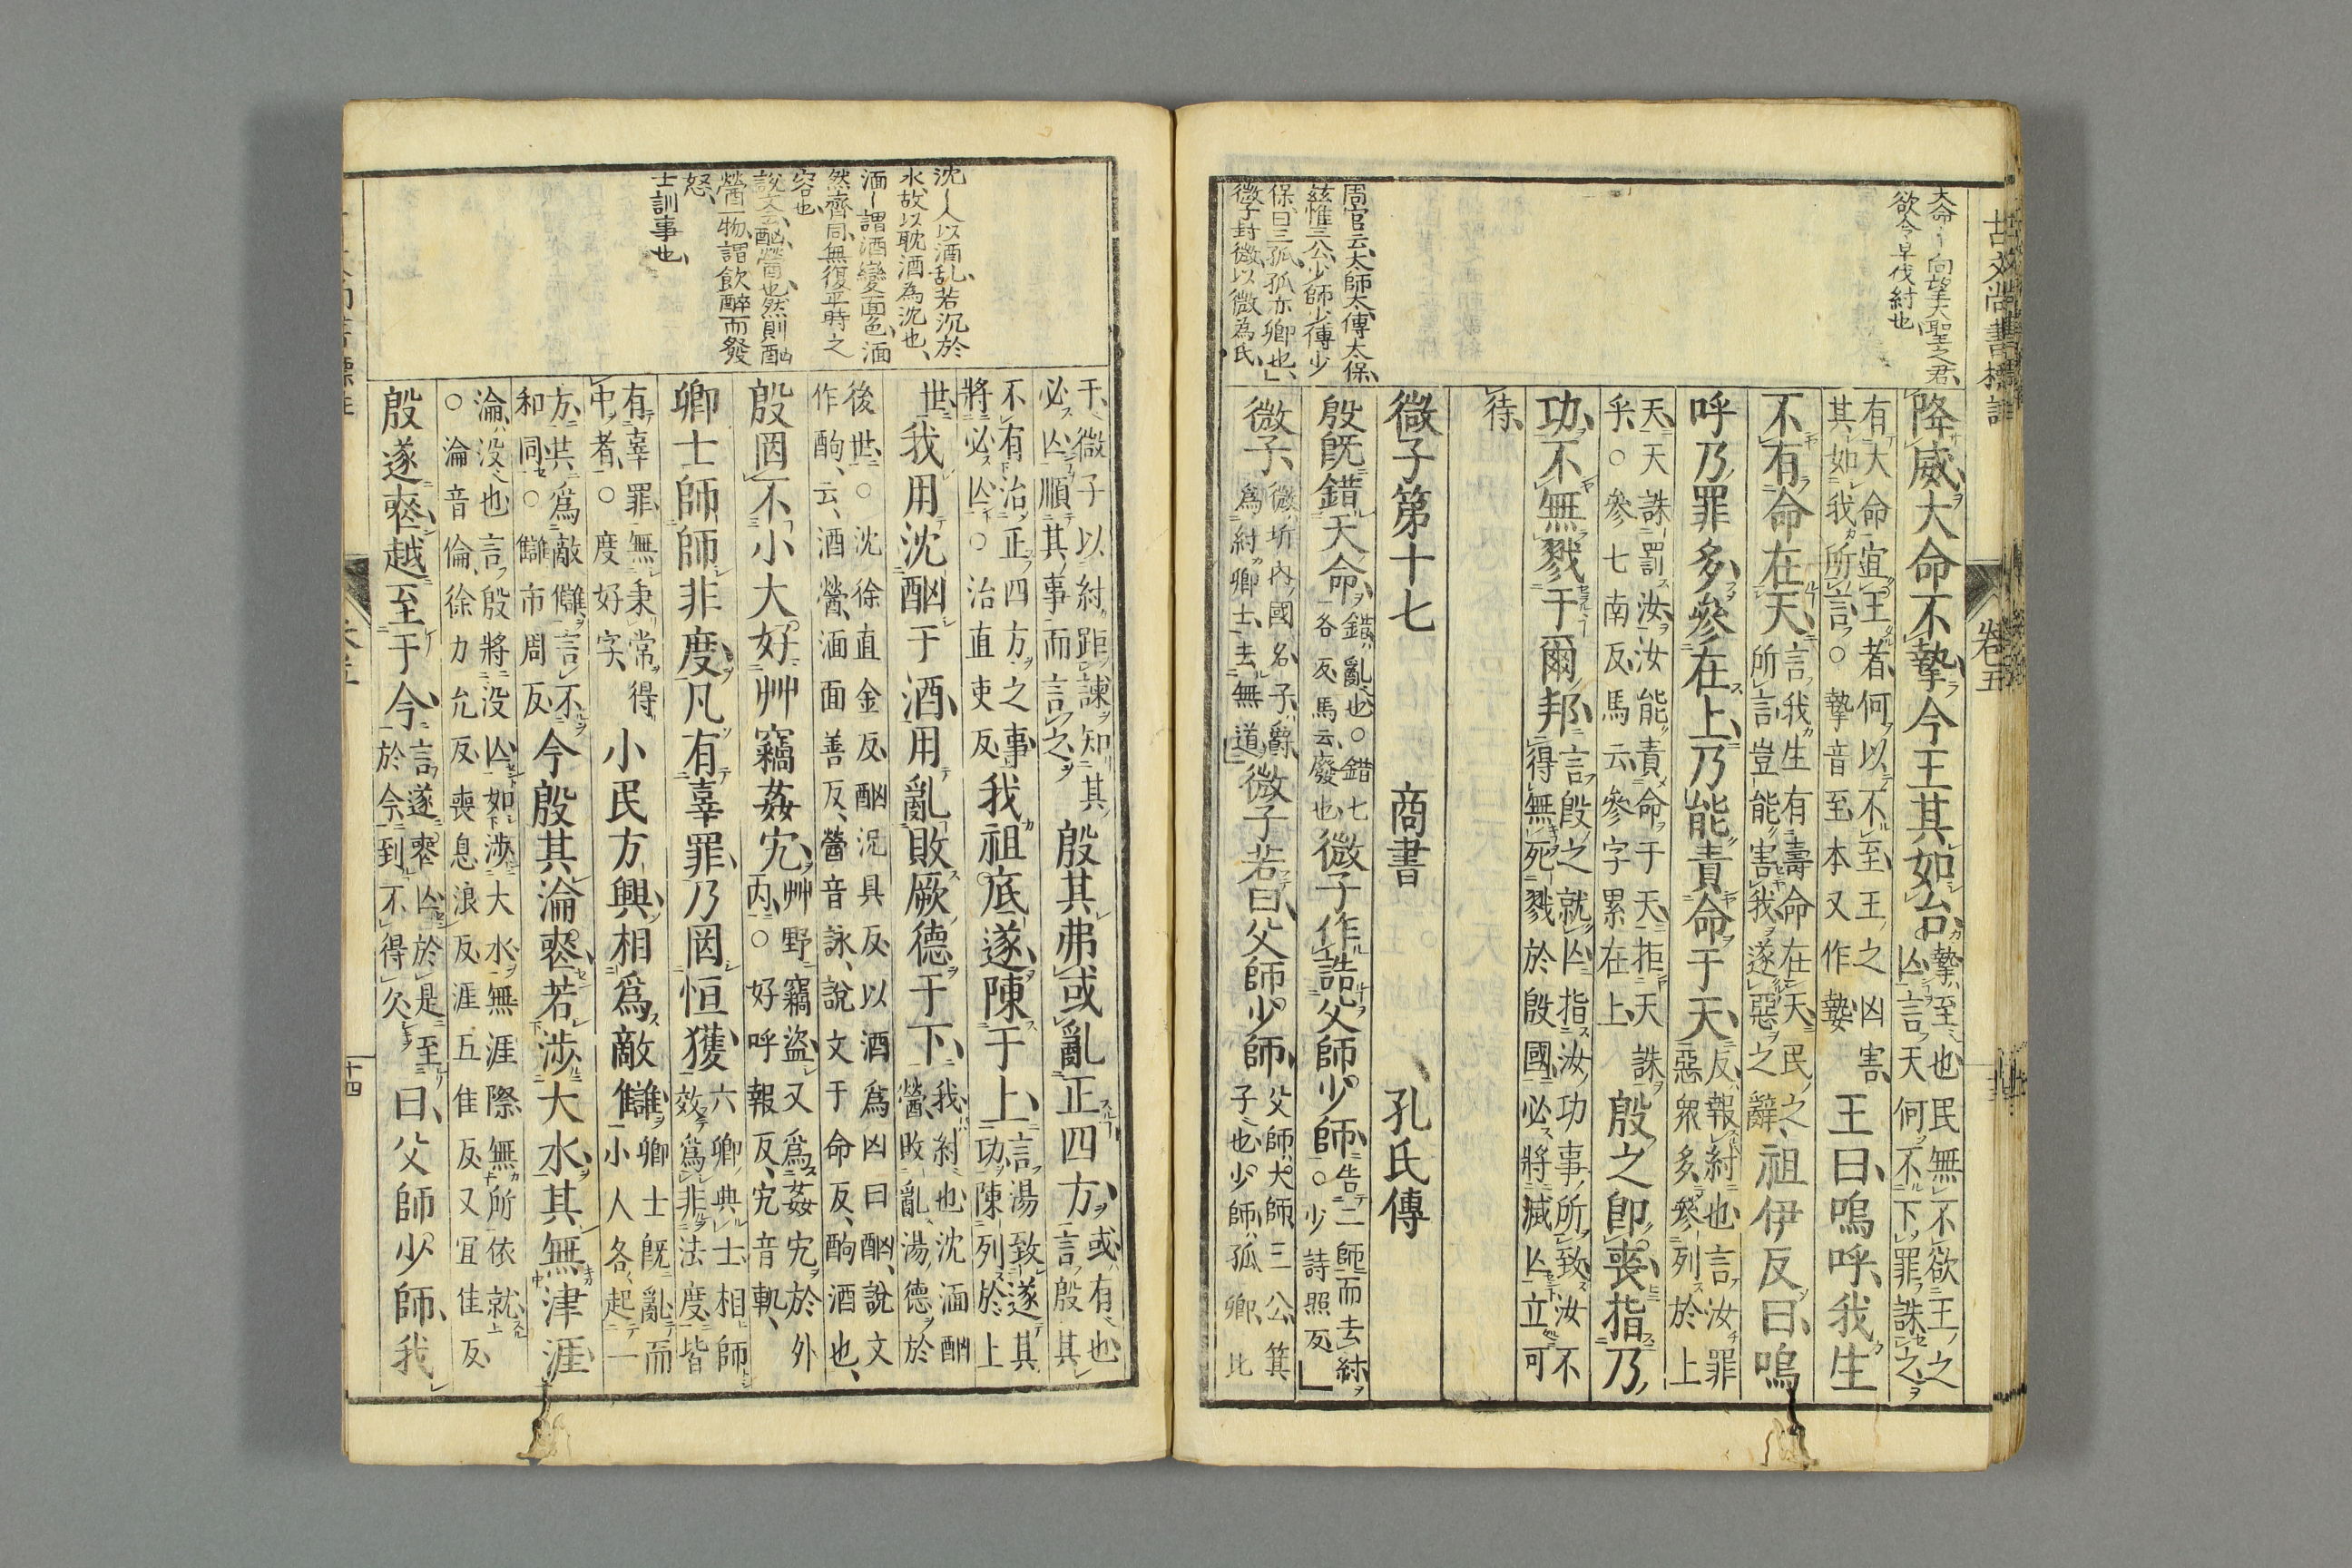 古文尚書標註
卷五
大命〻向望大聖之君、
欲令早伐紂也、
周官云、太師太傅太保、
茲惟三公、少師少傅少
保、曰三孤、孤亦卿也、
微子封微、以微為氏、
降威大命不摯今王其如台摯至也民無不欲王之
亾言天何不下罪誅之
有大命宜王者何以不至王之凶害
其如我所言○摯音至本又作𡠗王曰嗚呼我生
不有命在天言我生有壽命在天民之
所言豈能害我遂惡之辭祖伊反曰嗚
呼乃罪多參在上乃能責命于天反報紂也言汝罪
惡衆多參列於上
天天誅罰汝汝能責命于天天拒天誅
乎○參七南反馬云參字累在上殷之卽喪指乃
功不無戮于爾邦言殷之就亾指汝功事所致汝不
得無死戮於殷國必將滅亾立可
待
微子第十七 商書 孔氏傳
殷旣錯天命錯亂也○錯七
各反馬云廢也微子作誥父師少師告二師而去紂
○少詩照反
微子微圻內國名子爵
爲紂卿士去無道微子若曰父師少師父師大師三公箕
子也少師孤卿比
沈〡人以酒乱若沉於
水、故以耽酒為沈也、
湎〡謂酒變面色、湎
然齊同、無復平時之
容也、
說文云、酗醟也、然則酗
醟一物、謂飲醉而發
怒、
士訓事也、
干微子以紂距諫知其
必亾順其事而言之殷其弗或亂正四方或有也
言殷其
不有治正四方之事
將必亾○治直吏反我祖底遂陳于上言湯致遂其
功陳列於上
世我用沈酗于酒用亂敗厥德于下我紂也沈湎酗
醟敗亂湯德於
後世○沈徐直金反酗況具反以酒爲凶曰酗說文
作酌云酒醟湎面善反醟音詠說文于命反酌酒也
殷罔不小大好艸竊姦宄艸野竊盜又爲姦宄於外
內○好呼報反宄音軌
卿士師師非度凡有辜罪乃罔恒獲六卿典士相師
效爲非法度皆
有辜罪無秉常得
中者○度好字小民方興相爲敵讎卿士旣亂而
小人各起一
方共爲敵讎言不
和同○讎市周反今殷其淪喪若涉大水其無津涯
淪没也言殷將没亾如涉大水無涯際無所依就
○淪音倫徐力允反喪息浪反涯五隹反又宜佳反
殷遂喪越至于今言遂喪亾於是至
於今到不得久曰父師少師我
十四